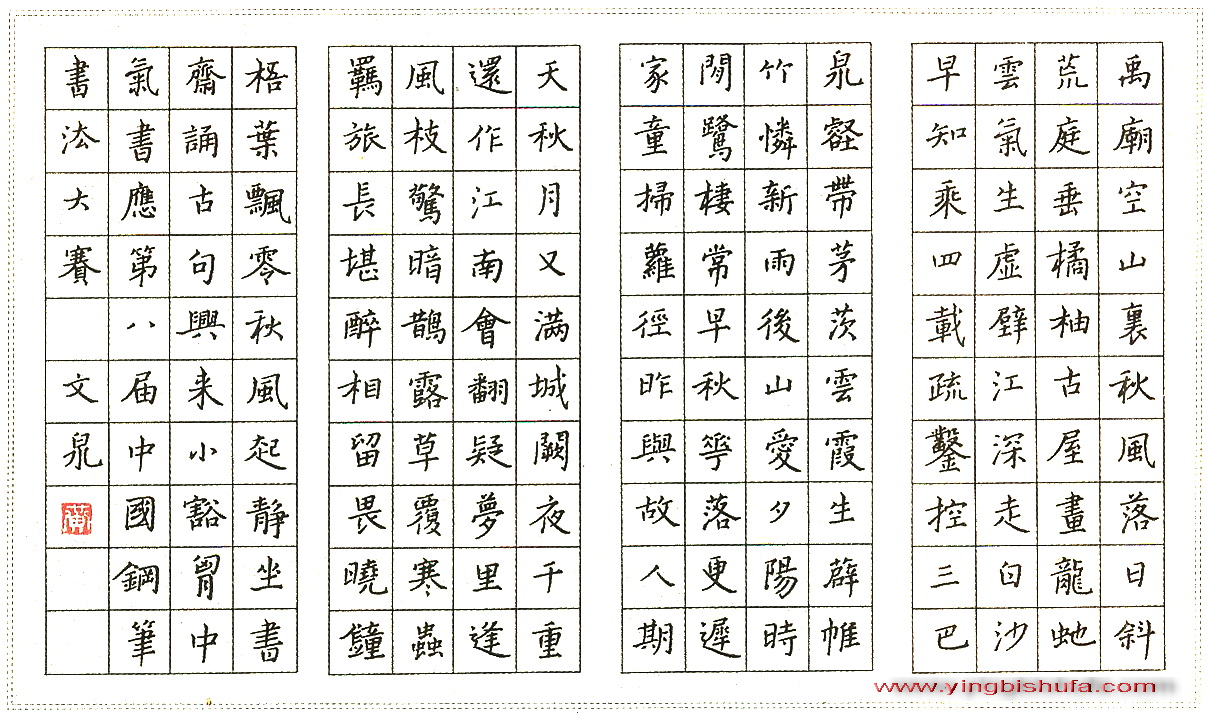 禹廟空山裏秋風落日斜
荒庭垂橘柚古屋畫龍虵
雲氣生虛壁江深走白沙
早知乘四載疏鑿控三巴
泉壑帶茅茨雲霞生薜帷
竹憐新雨後山愛夕陽時
閒鷺棲常早秋華落更遲
家童掃蘿徑昨與故人期
天秋月又滿城闕夜千重
還作江南會翻疑夢里逢
風枝驚暗鵲露草覆寒蟲
羈旅長堪醉相留畏曉鐘
梧葉飄零秋風起静坐書
齋誦古句興来小豁胷中
氣書應第八届中國鋼筆
書法大賽 文泉
www.yingbishufa.com